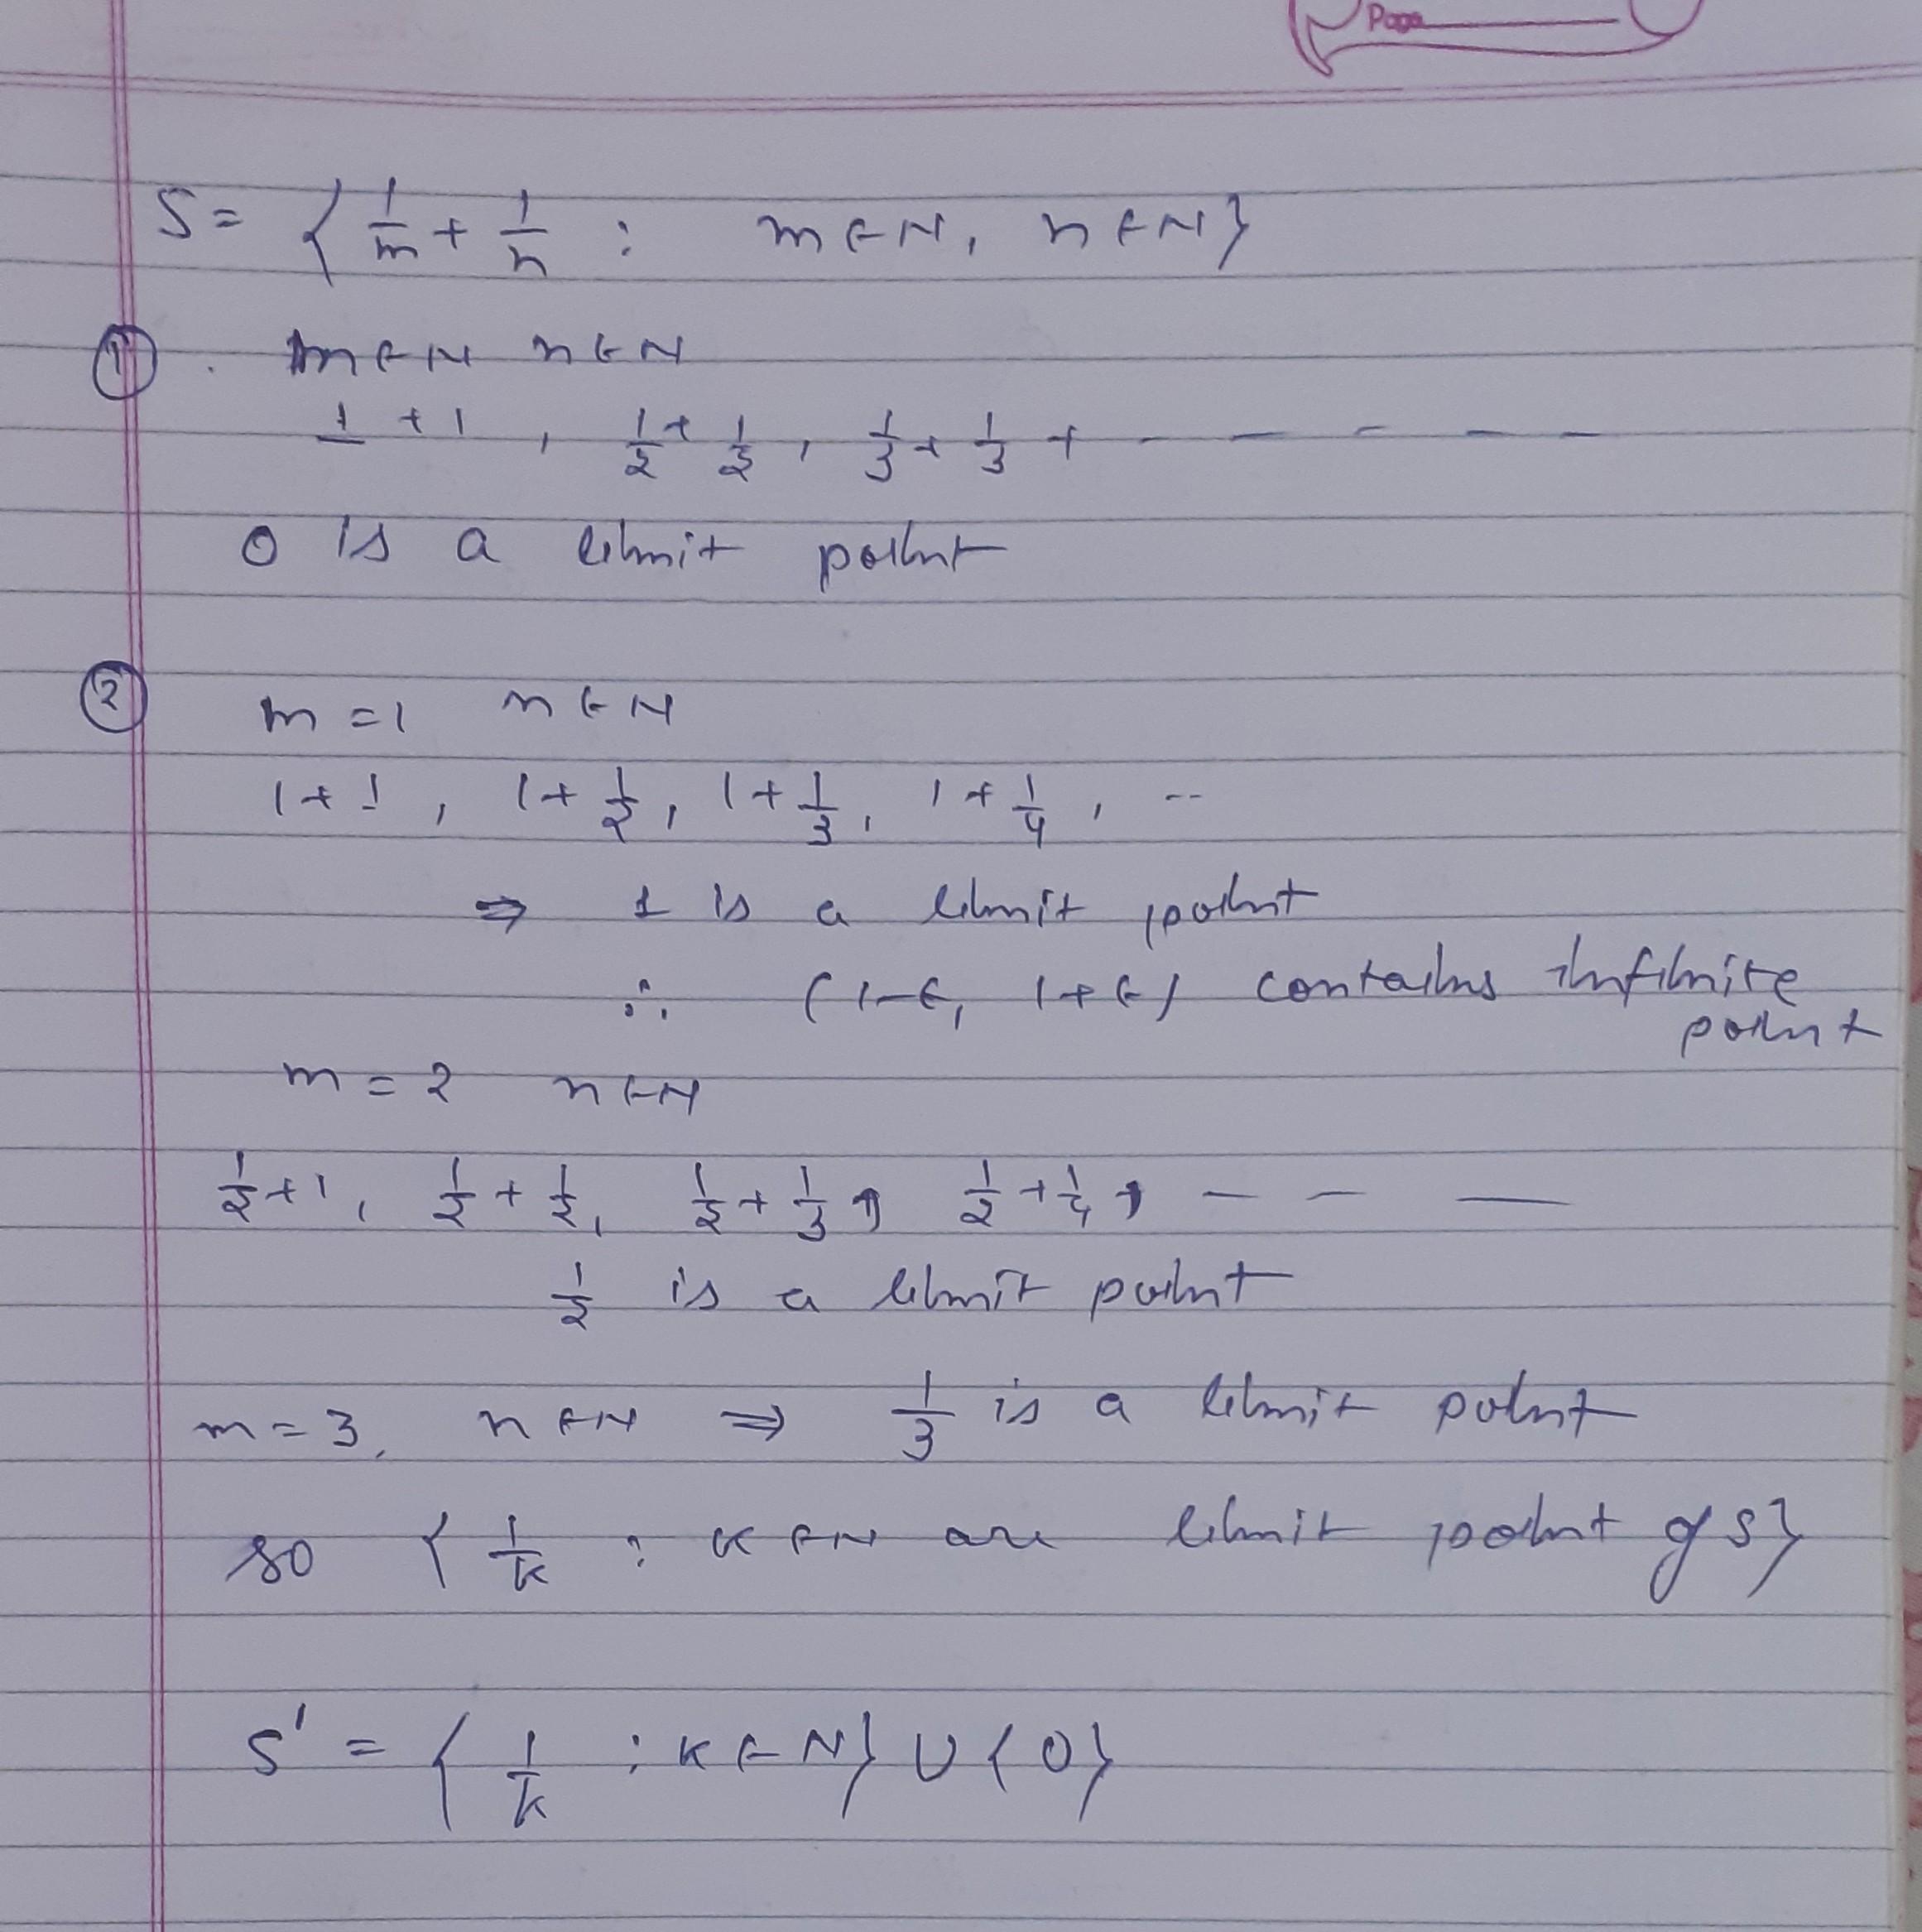 Page
S = { 1/m + 1/n : m ∈ N, n ∈ N}
① . m ∈ N n ∈ N
1 + 1 , 1/2 + 1/2 , 1/3 + 1/3 + - - - - -
0 is a limit point
② m = 1 n ∈ N
1 + 1 , 1 + 1/2 , 1 + 1/3 , 1 + 1/4 , --
⇒ 1 is a limit point
∴ (1-ϵ, 1+ϵ) contains infinite
point
m = 2 n ∈ N
1/2 + 1 , 1/2 + 1/2 , 1/2 + 1/3 , 1/2 + 1/4 , - - -
1/2 is a limit point
m = 3, n ∈ N ⇒ 1/3 is a limit point
so { 1/k : k ∈ N are limit point of S}
S' = { 1/k : k ∈ N} ∪ {0}